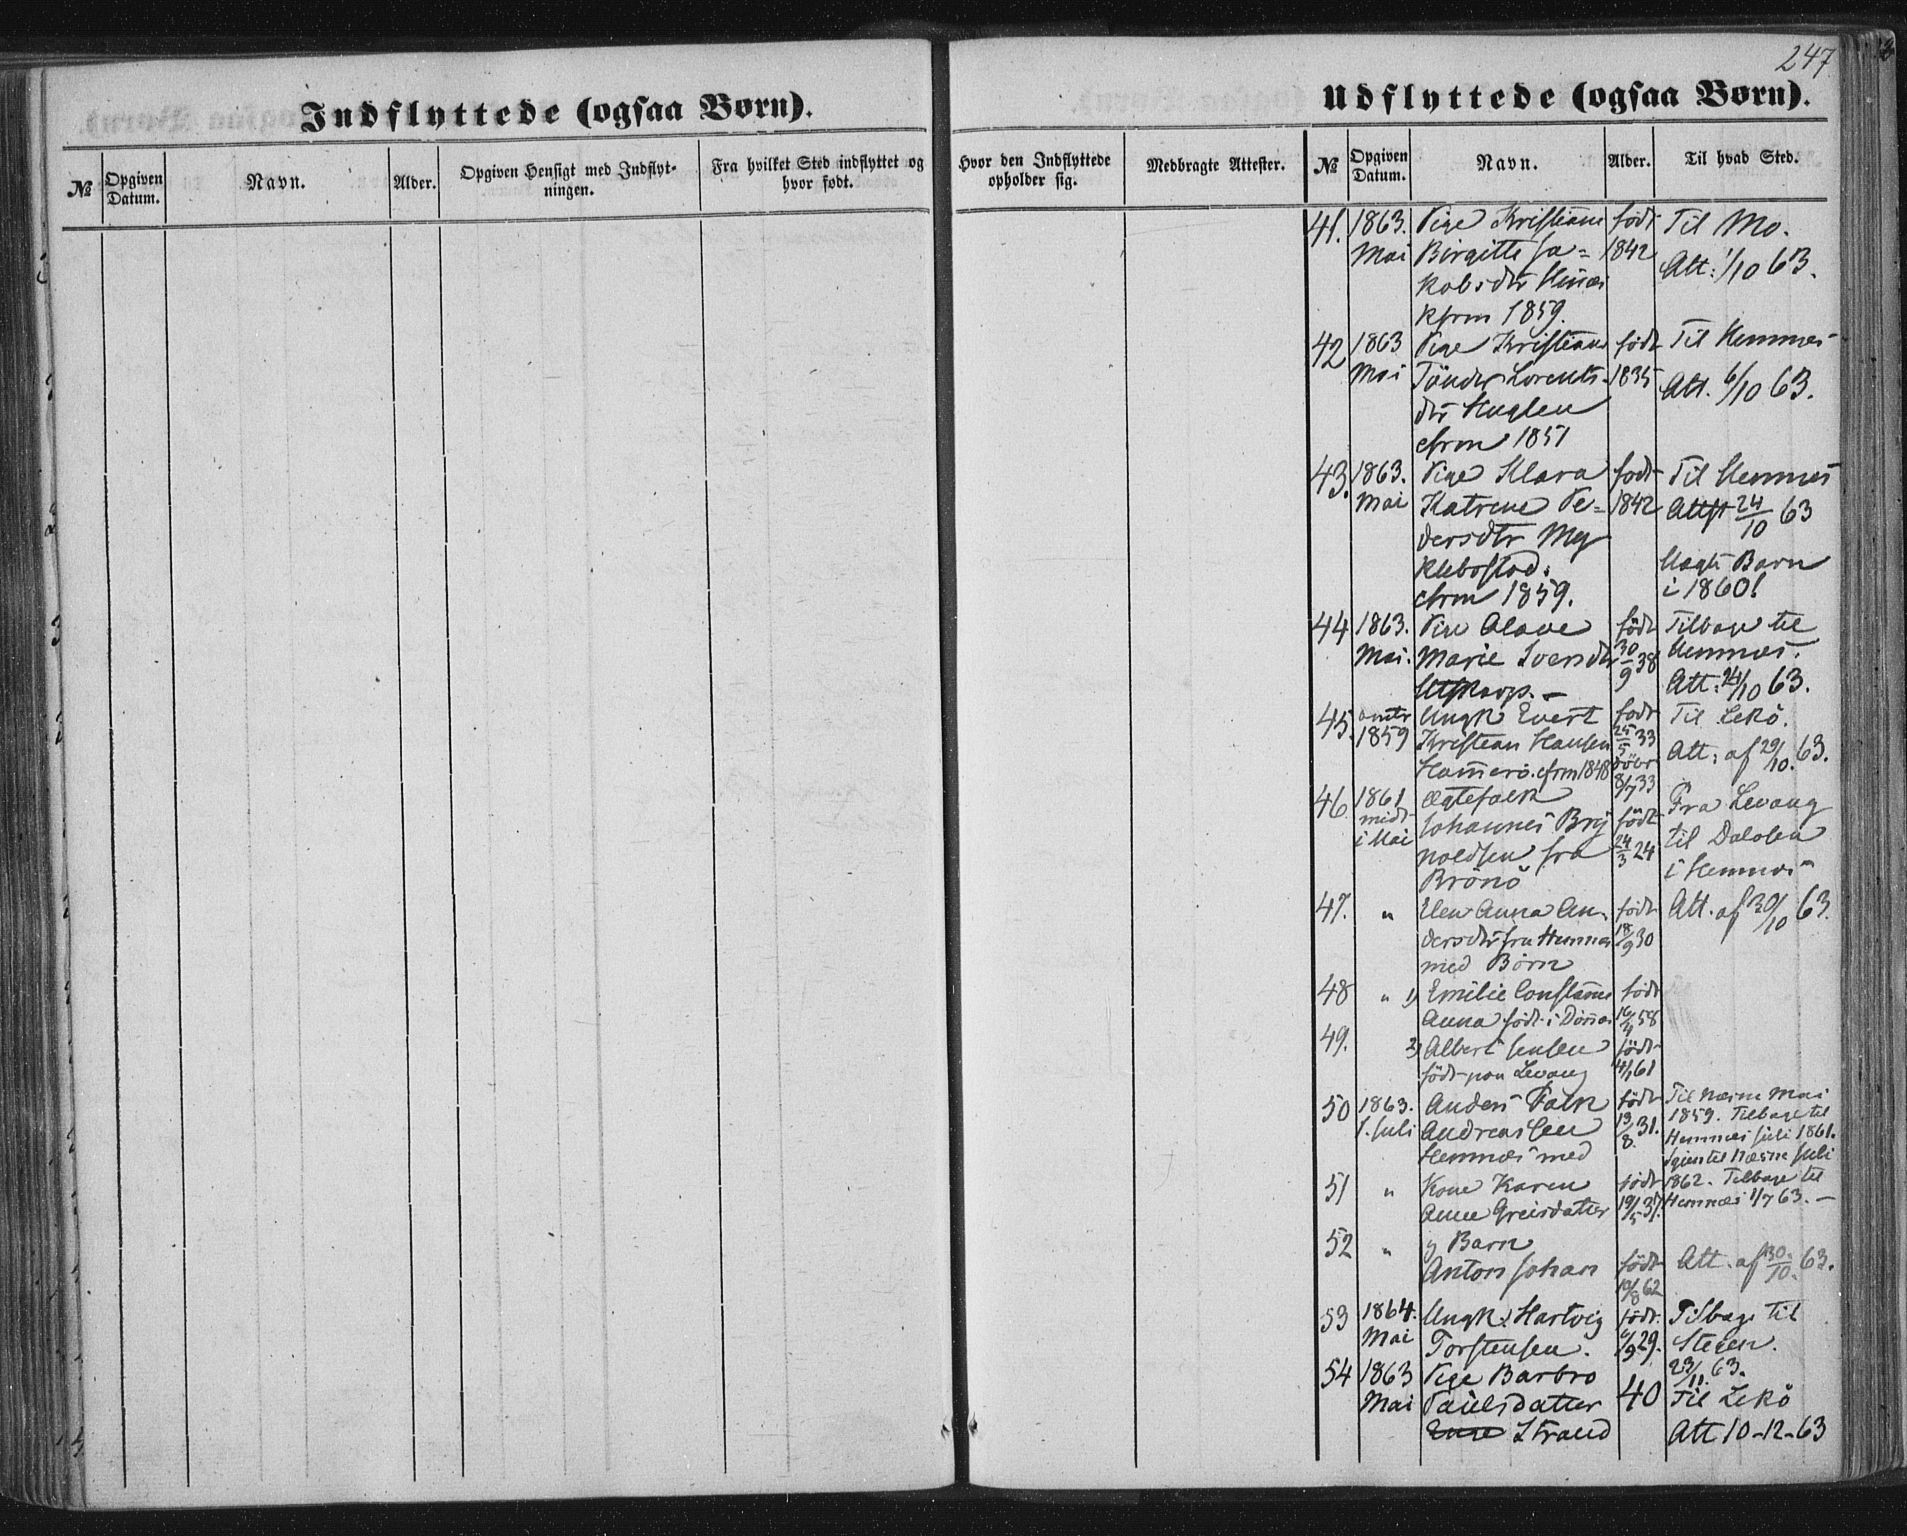 247
Indflyttede (ogsaa Børn).
Udflyttede (ogsaa Børn).
№ Opgiven Datum. Navn. Alder. Opgiven Hensigt med Indflyt-
ningen. Fra hvilket Sted indflyttet og
hvor født. Hvor den Indflyttede
opholder sig. Medbragte Attester. № Opgiven
Datum. Navn. Alder. Til hvad Sted.
41. 1863. Pige Kristiane født Til Mo.
Mai Birgitte Ja= 1842 Att: 1/10 63.
kobsdtr
kfrm 1859.
42 1863 Pige Kristiane født Til Hemnes
Mai Tönder Lorents- 1835 Att. 6/10 63.
dtr Huglen
cfrm 1851
43. 1863. Pige Klara født Til Hemnes
Mai Katrine Pe= 1842 Attst 24/10 63
dersdtr My
klebostad. Uægte Barn
cfrm 1859. i 1860!
44 1863. Pige Olave født Tilbage til
Mai. Marie Iversdtr 30/9 38 Hemnes.
Utskarp. — Att: 24/10 63.
45. omtr Ungk Evert født Til Lekö.
1859 Kristian Hansen 25/5 33 Att: af 29/10. 63.
Hammerö. cfrm 1848 döbt 8/7 33
46 1861 Ægtefolk Fra Levang
midt Johannes Bryj født til Dalosen
i Mai noldsen fra 24/3 24 i Hemnes
Brönö
47. " Elen Anna An- født Att. af 30/10 63.
dersdtr fra Hemnes 18/9 30
med Börn
48 " 1) Emilie Constanse født
Anna født i Dönnes 16/4 58
49. 2) Albert Jensen født
født paa Levang 4/1 61
50 1863. Anders Falk født Til Næsne Mai
1. Juli Andreassen 13/8. 31. 1859. Tilbage til
Hemnes med Hemnes Juli 1861.
Igjen til Næsne Juli
51 " Kone Karen født 1862. Tilbage til
Anne Greisdatter 19/5 37. Hemnes 1/7 63. —
52 " Barn
Anton Johan født Att. af 30/10. 63.
10/8 62
53 1864. Ungk. Hartvig født Tilbage til
Mai Torstensen. 6/9 29. Stegen.
23/11. 63.
54 1863 Pige Barbro 40 Til Lekö
Mai Paulsdatter Att 10-12-63
Strand